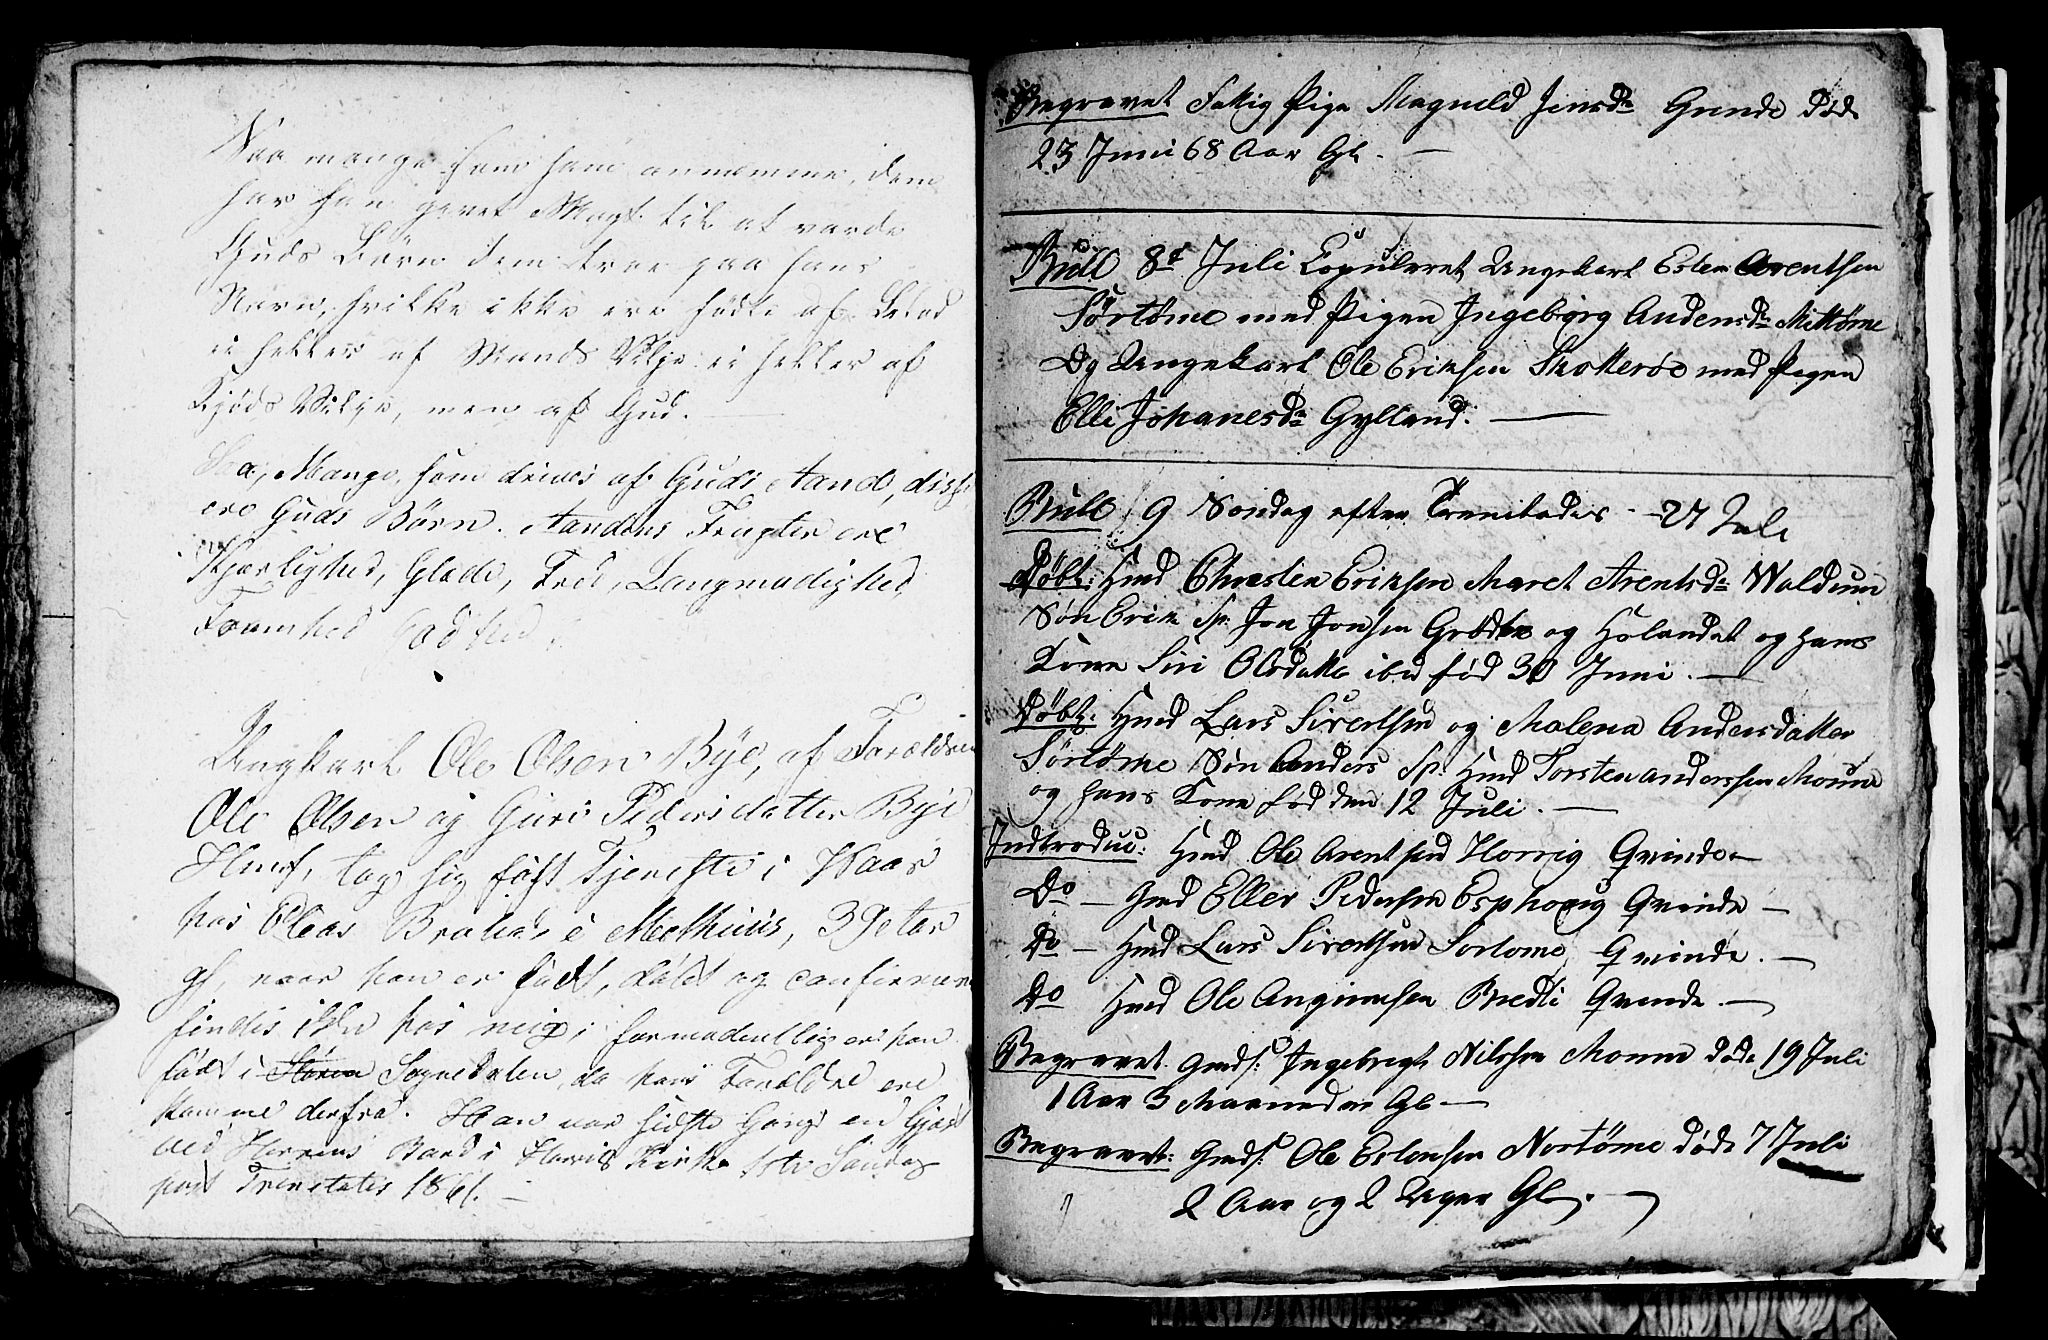 Saa mange som ham annamme, dem
har han gevet Magt til at vorde
Guds Børn dem troe paa hans
Navn, hvilke ikke ere fødte af Blod
ei heller af Mands Vilje ei heller af
Kjøds Vilje, men af Gud.
Saa Mange, som drives af Guds Aand, disse
ere Guds Børn. Aandens Frugter ere
Kjærlighed, Glæde, Fred, Langmodighed
Fromhed Godhed
Ungkarl Ole Olsen Bye, af Forældre
Ole Olsen og Guri Pedersdatter Bye
Huus, tog sig fast Tjeneste i
hos i Melhuus, 3
gl, naar han er født, døbt og confirmeret
findes ikke hos mig; formodentlig er han
født i Støren Sognedalen, da hans Forældre ere
komme derfra. Han var sidste Gang en Gjæst
ved Herrens Bord i Hovis Kirke Søndag
post Trinitatis 1861.
Begravet Fattig Pige Magnild Jensdr Grinde Død
23 Juni 68 Aar Gl.
Bull 8d Juli Copuleret Ungekarl Esten Arentsen
Sørtøme med Pigen Ingeborg Andersdr Mittøme
Og Ungekarl Ole Eriksen Skotterøe med Pigen
Elli Johanesdr Gylland.
Bull 9 Søndag efter Trenitades - 27 Juli
Døbt: Hmd Christen Eriksen Maret Arentsdr Waldum
Søn Erik Sp. Jon Jonsen Grødte og Holandet og hans
Kone Siri Olsdatter ibid fød 30 Juni.
Døbt: Hmd Lars Sivertsen og Malena Andersdatter
Sørtøme Søn Anders Sp: Hmd Torsten Anderssen Moum
og hans Kone fød den 12 Juli.
Indtroduc: Hmd Ole Arentsen Horrig Qvinde
Do - Gmd Eller Pedersen Esphoug Qvinde
Do - Hmd Lars Sivertsen Sortome, Qvinde.
Do Hmd Ole Bredli Qvinde.
Begravet Gmds: Ingebregt Nilssen Moum Døde 19 Juli
1 Aar 3 Maaneder Gl
Begravet: Gmds: Ole Estensen Nortøme Døde 7 Juli
2 Aar og 2 Uger Gl.